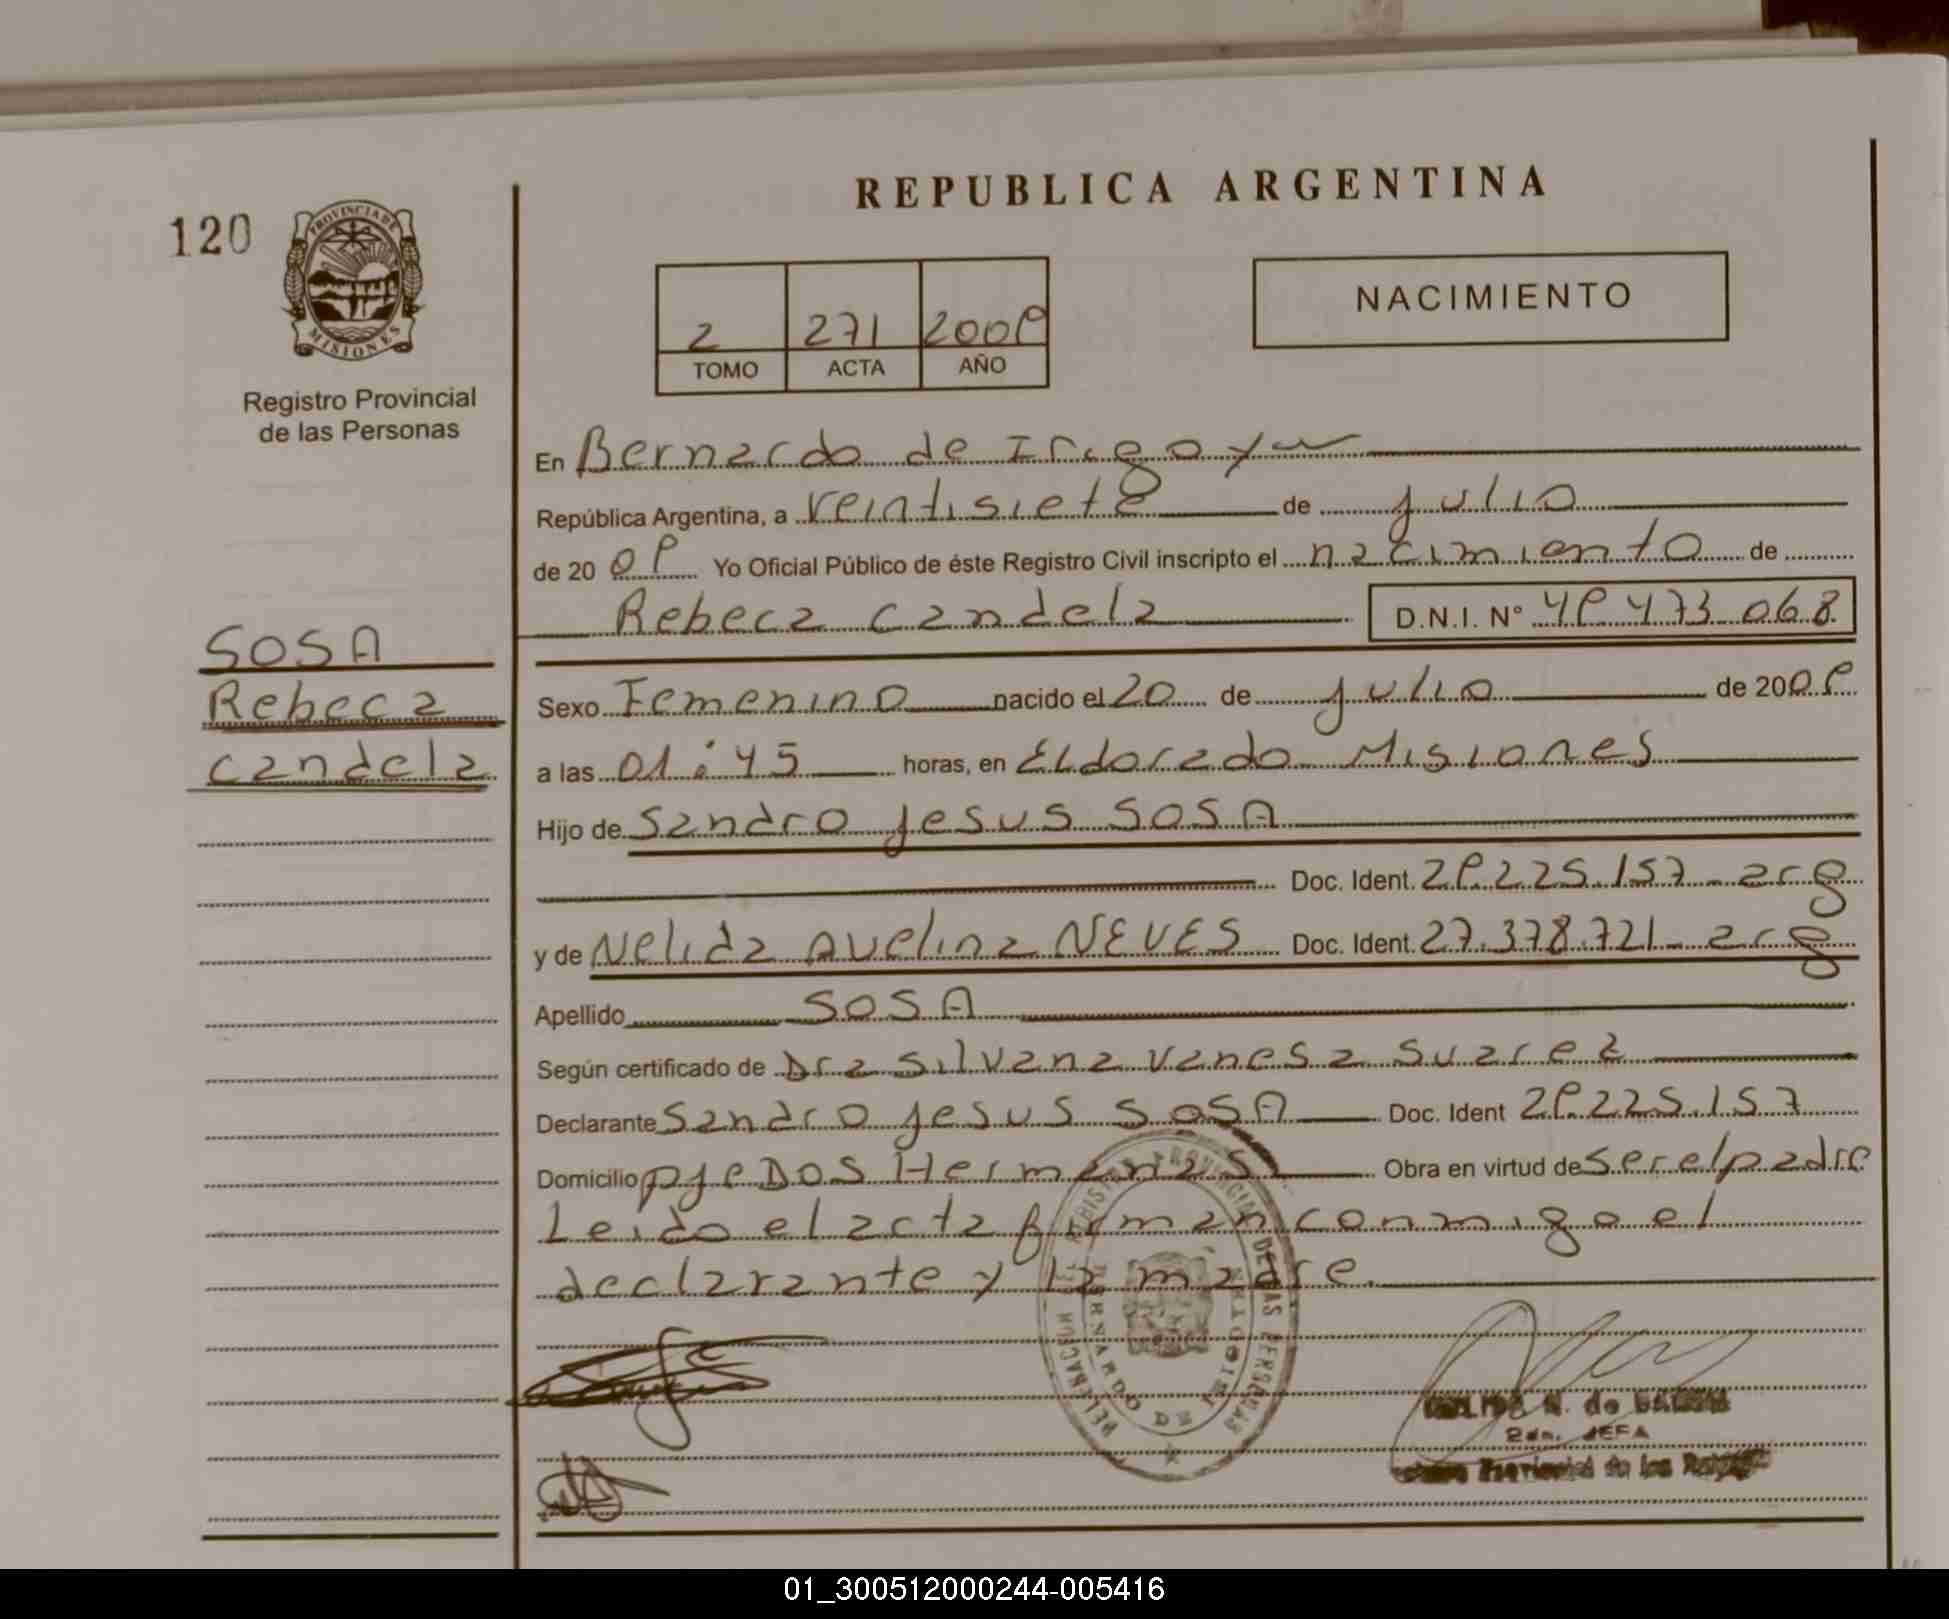 REPUBLICA ARGENTINA
120
PROVINCIA DE
MISIONES
Registro Provincial
de las Personas
2 271 2009
TOMO ACTA AÑO
NACIMIENTO
SOSA
Rebeca
candela
En Bernardo de Irigoyen
República Argentina, a veintisiete de julio
de 2009 Yo Oficial Público de éste Registro Civil inscripto el nacimiento de
Rebeca candela D.N.I. N° 49 473 068
Sexo Femenino nacido el 20 de julio de 2009
a las 01:45 horas, en Eldorado Misiones
Hijo de Sandro Jesus SOSA
Doc. Ident. 29.225.157 - arg
y de Nelida Avelina NEVES Doc. Ident. 27.378.721 - arg
Apellido SOSA
Según certificado de Dra Silvana Vanesa Suarez
Declarante Sandro Jesus SOSA Doc. Ident 29.225.157
Domicilio pje DOS Hermanas Obra en virtud de ser el padre
Leido el acta firman conmigo el
declarante y la madre.
REGISTRO PROVINCIAL DE LAS PERSONAS
BERNARDO DE IRIGOYEN
N. de
2da. JEFA
Provincial de las
01_300512000244-005416